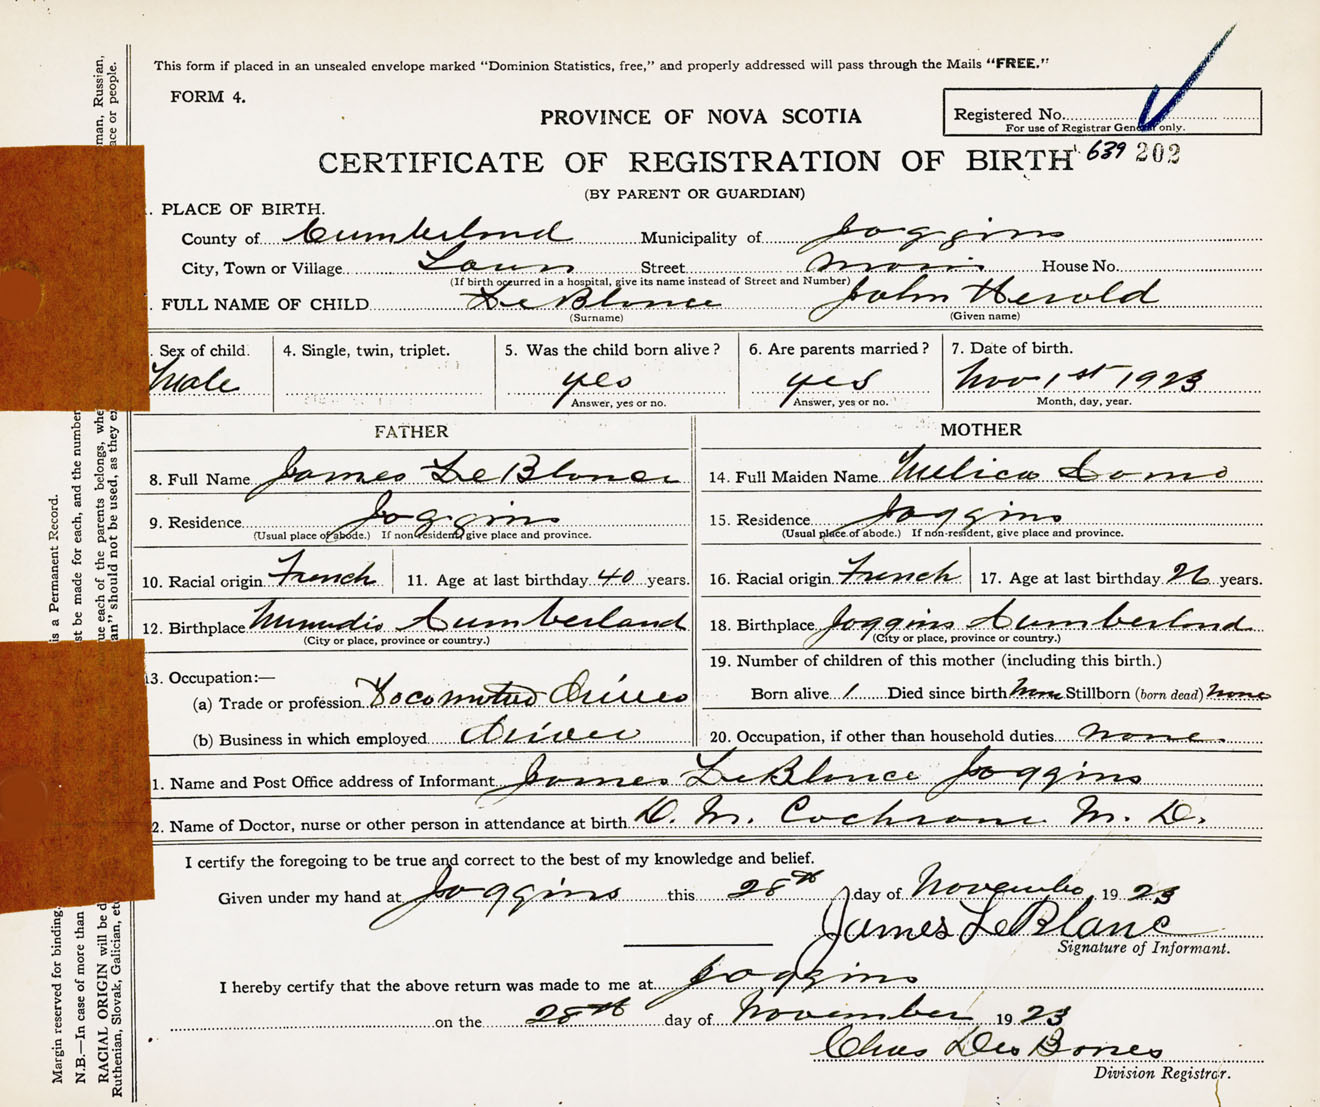 This form if placed in an unsealed envelope marked "Dominion Statistics, free," and properly addressed will pass through the Mails "FREE."
FORM 4.
PROVINCE OF NOVA SCOTIA
Registered No.
For use of Registrar General only.
CERTIFICATE OF REGISTRATION OF BIRTH 639 202
(BY PARENT OR GUARDIAN)
. PLACE OF BIRTH.
County of Cumberlnd Municipality of Joggins
City, Town or Village Town Street Main House No.
(If birth occurred in a hospital, give its name instead of Street and Number)
. FULL NAME OF CHILD LeBlance John Herold
(Surname) (Given name)
. Sex of child. 4. Single, twin, triplet. 5. Was the child born alive? 6. Are parents married? 7. Date of birth.
Male yes yes Nov 1st 1923
Answer, yes or no. Answer, yes or no. Month, day, year.
FATHER MOTHER
8. Full Name James LeBlance 14. Full Maiden Name Melica
9. Residence Joggins 15. Residence Joggins
(Usual place of abode.) If non-resident, give place and province. (Usual place of abode.) If non-resident, give place and province.
10. Racial origin French 11. Age at last birthday 40 years. 16. Racial origin French 17. Age at last birthday 26 years.
12. Birthplace Minudie Cumberland 18. Birthplace Joggins Cumberlond
(City or place, province or country.) (City or place, province or country.)
13. Occupation:— 19. Number of children of this mother (including this birth.)
(a) Trade or profession Driver Born alive 1 Died since birth None Stillborn (born dead) none
(b) Business in which employed Driver 20. Occupation, if other than household duties none
1. Name and Post Office address of Informant James LeBlance Joggins
2. Name of Doctor, nurse or other person in attendance at birth D. M. Cochrane M. D.
I certify the foregoing to be true and correct to the best of my knowledge and belief.
Given under my hand at Joggins this 28th day of November 1923
James LeBlanc
Signature of Informant.
I hereby certify that the above return was made to me at Joggins
on the 28th day of November 1923
Chas Des Barres
Division Registrar.
Margin reserved for binding.
is a Permanent Record.
N.B.—In case of more than
st be made for each, and the number
RACIAL ORIGIN will be d
ue each of the parents belongs, whe
man, Russian,
Ruthenian, Slovak, Galician, etc
an" should not be used, as they ex
ace or people.